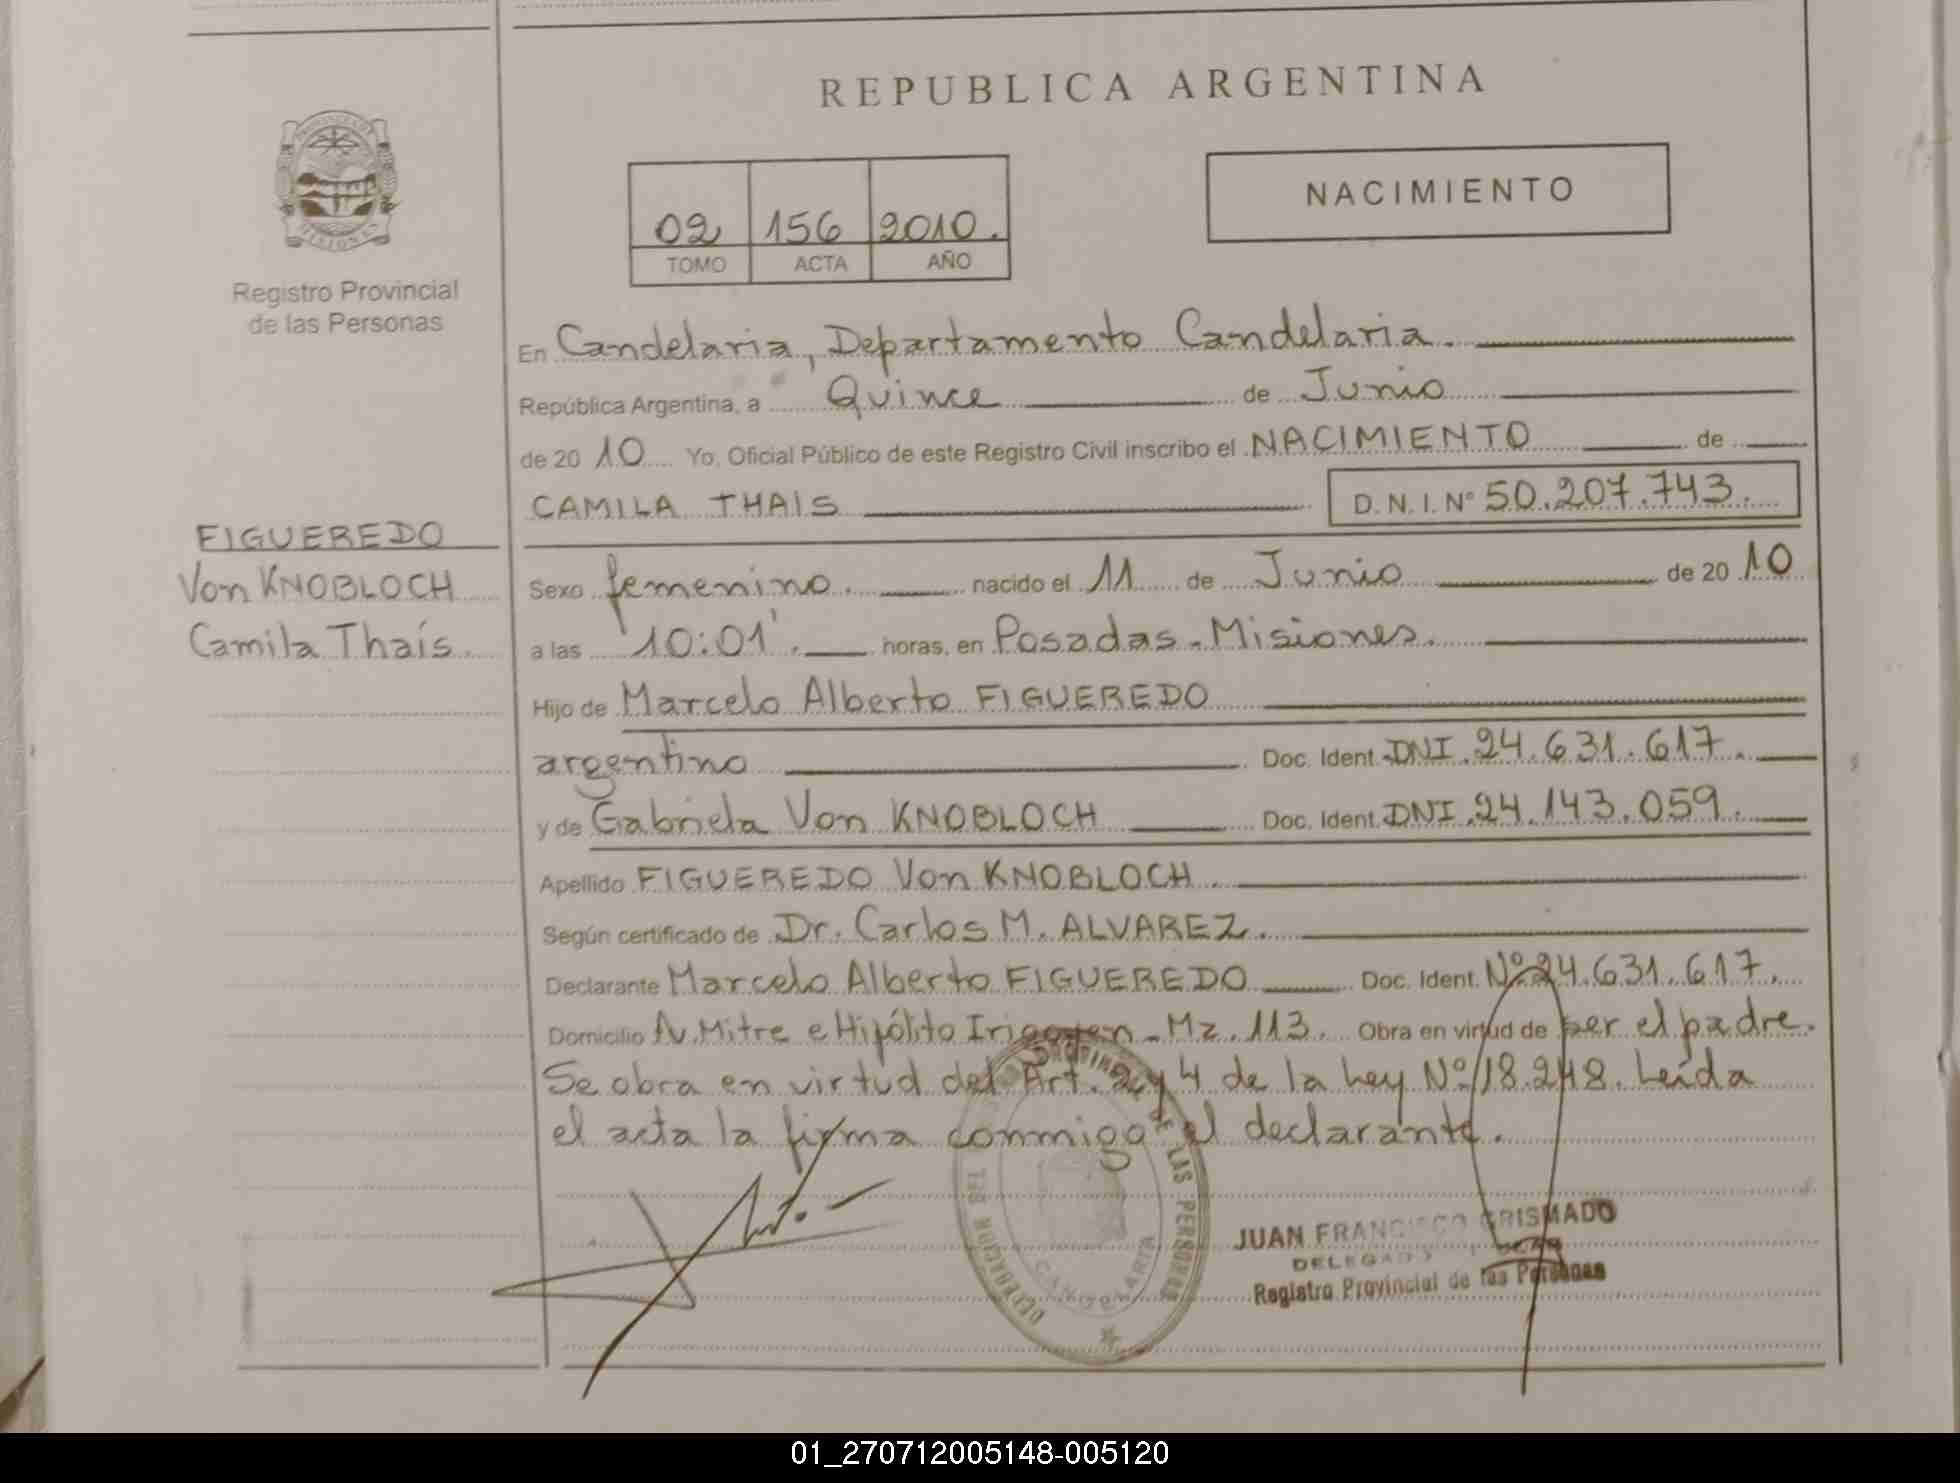 REPUBLICA ARGENTINA
NACIMIENTO
02 156 2010.
TOMO ACTA AÑO
Registro Provincial
de las Personas
En Candelaria, Departamento Candelaria.
República Argentina, a Quince de Junio
de 20 10 Yo, Oficial Público de este Registro Civil inscribo el NACIMIENTO de
CAMILA THAIS D.N.I.Nº 50.207.743.
FIGUEREDO
Von KNOBLOCH
Camila Thaís
Sexo femenino. nacido el 11 de Junio de 20 10
a las 10:01'. horas, en Posadas - Misiones.
Hijo de Marcelo Alberto FIGUEREDO
argentino Doc. Ident. DNI. 24.631.617.
y de Gabriela Von KNOBLOCH Doc. Ident. DNI. 24.143.059.
Apellido FIGUEREDO Von KNOBLOCH.
Según certificado de Dr. Carlos M. ALVAREZ.
Declarante Marcelo Alberto FIGUEREDO Doc. Ident. Nº 24.631.617.
Domicilio Av. Mitre e Hipólito Irigoyen - Mz. 113. Obra en virtud de ser el padre.
Se obra en virtud del Art. 2 y 4 de la Ley Nº 18.248. Leída
el acta la firma conmigo el declarante.
DE LAS PERSONAS
CANDELARIA
JUAN FRANCISCO GRISMADO
DELEGADO
Registro Provincial de las Personas
01_270712005148-005120